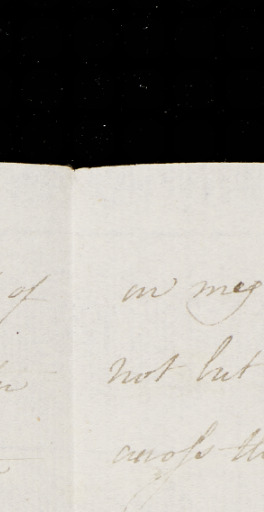 of on my
not but
across th